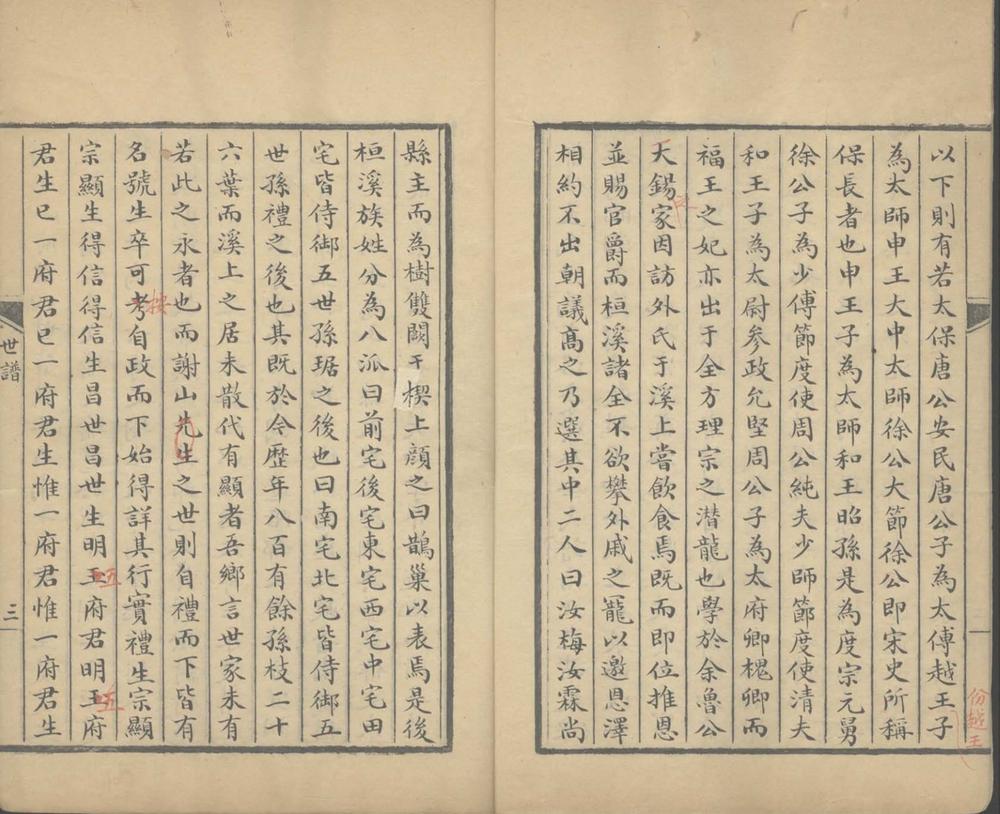 以下則有若太保唐公安民唐公子為太傅越王子
為太師申王大中太師徐公大節徐公即宋史所稱
保長者也申王子為太師和王昭孫是為度宗元舅
徐公子為少傅節度使周公純夫少師節度使清夫
和王子為太尉參政允堅周公子為太府卿槐卿而
福王之妃亦出于全方理宗之潜龍也學於余魯公
天錫家因訪外氏于溪上嘗飲食焉既而即位推恩
並賜官爵而桓溪諸全不欲攀外戚之寵以邀恩澤
相約不出朝議高之乃選其中二人曰汝梅汝霖尚
份越王
縣主而為樹雙闕于楔上顔之曰鵲巢以表焉是後
桓溪族姓分為八派曰前宅後宅東宅西宅中宅田
宅皆侍御五世孫琚之後也曰南宅北宅皆侍御五
世孫禮之後也其既於今歷年八百有餘孫枝二十
六葉而溪上之居未散代有顯者吾鄉言世家未有
若此之永者也而謝山先生之世則自禮而下皆有
名號生卒可考自政而下始得詳其行實禮生宗顯
按
宗顯生得信得信生昌世昌世生明王府君明王府
五
五
君生巳一府君巳一府君生惟一府君惟一府君生
世譜
三